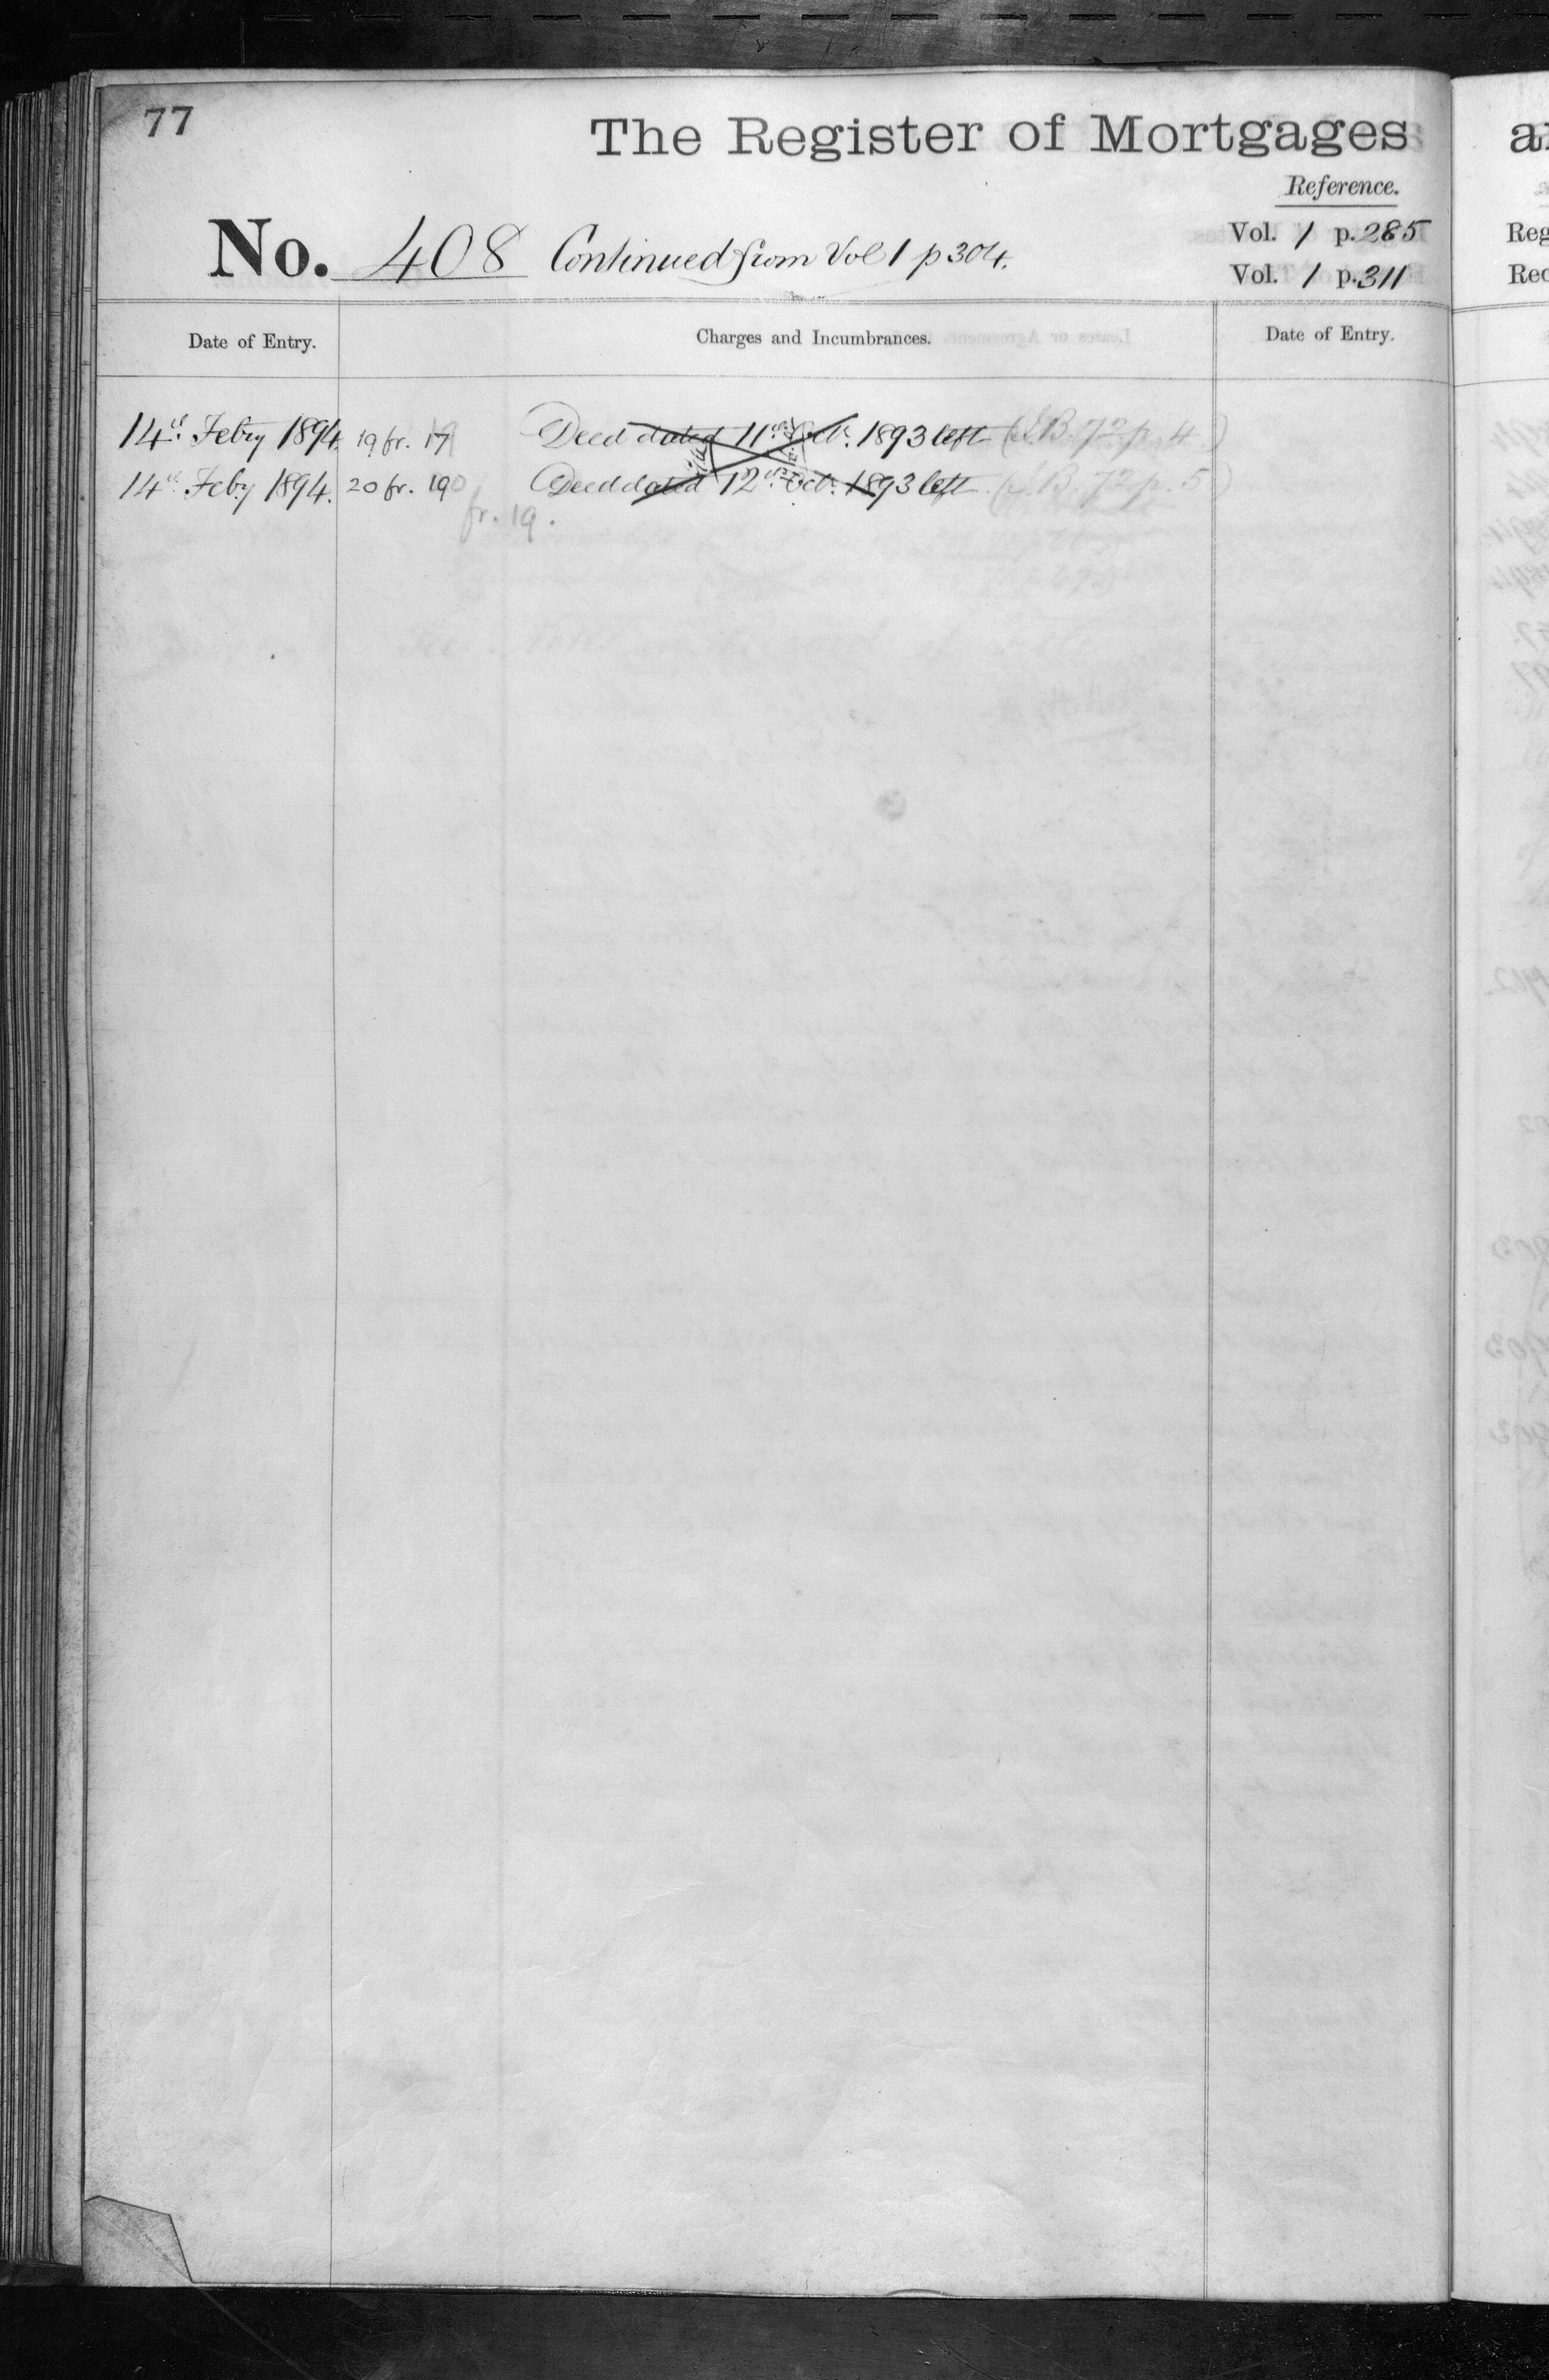 77
The Register of Mortgages
Reference.
No. 408 Continued from Vol 1 p 304.
Vol. 1 p. 285
Vol. 1 p. 311
Date of Entry. Charges and Incumbrances. Date of Entry.
14th Febry 1894. 19 fr. 17 Deed dated 11th Octr. 1893 left (S.B. 72 p. 4)
14th Feby 1894. 20 fr. 19 Deed dated 12th Octr. 1893 left (S.B. 72 p. 5)
fr. 19.
Reg
Rec